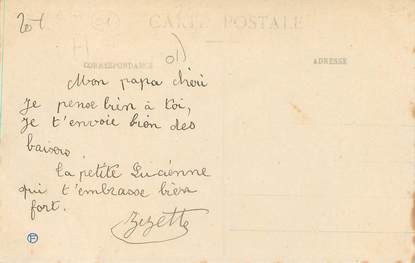 CARTE POSTALE
CORRESPONDANCE
ADRESSE
Mon papa chéri
Je pense bien à toi,
je t'envoie bien des
baisers.
La petite Lucienne
qui t'embrasse bien
fort.
Zizette